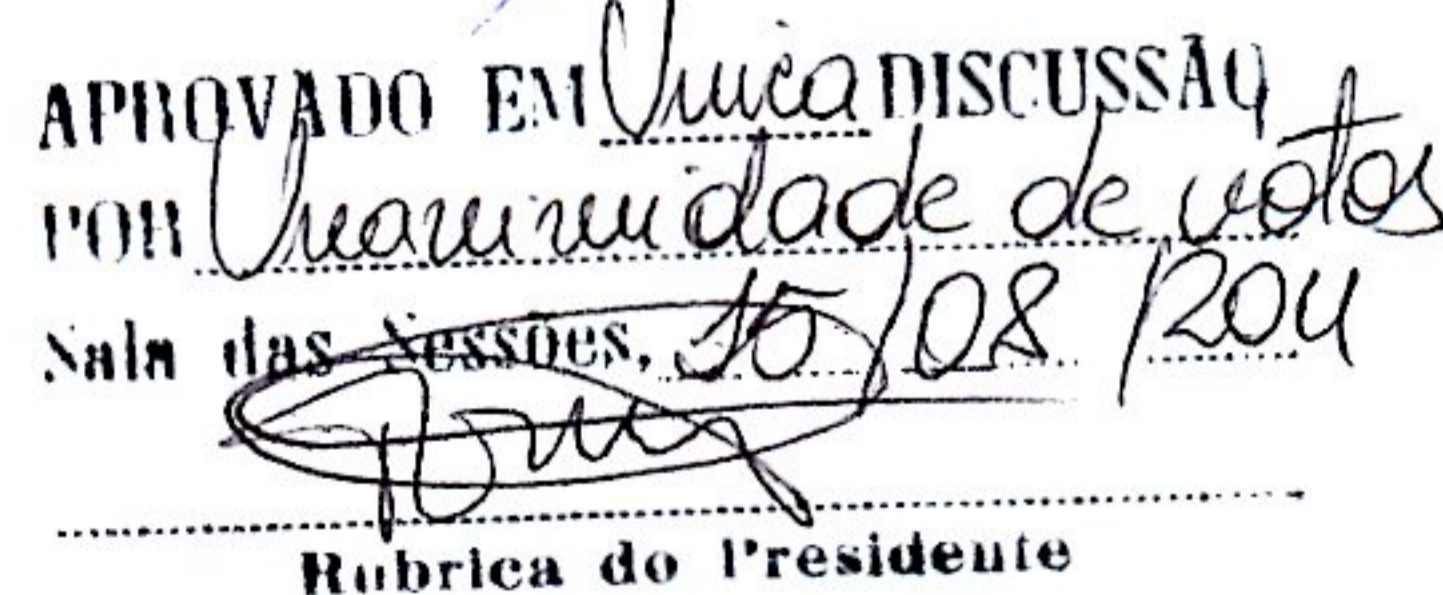 APROVADO EM Unica DISCUSSÃO
POR Unanimidade de votos
Sala das Sessões, 15/08/2011
Rubrica do Presidente